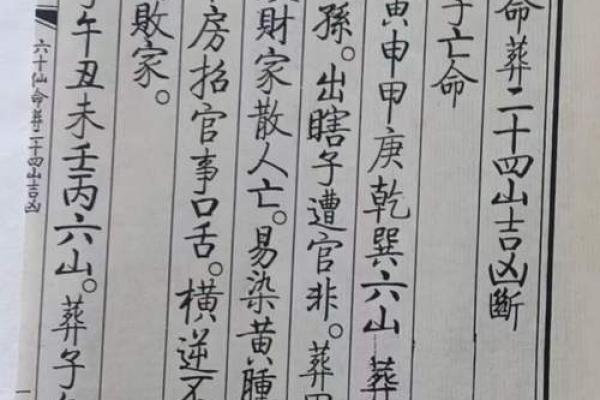 命葬二十四山吉凶斷
子亡命
寅申甲庚乾巽六山葬
孫。出瞎子遭官非。葬
財家散人亡。易染黄腫
房招官事口舌。橫逆不
敗家。
午丑未壬丙六山。葬子
六十仙命葬二十四山吉凶
一